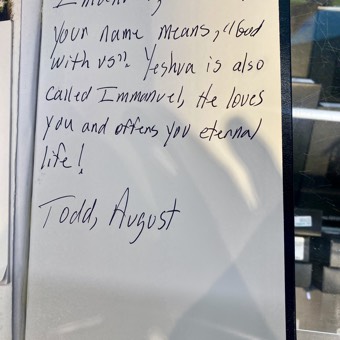 your name means, "God
with us". Yeshua is also
called Immanuel, He loves
you and offers you eternal
life!
Todd, August